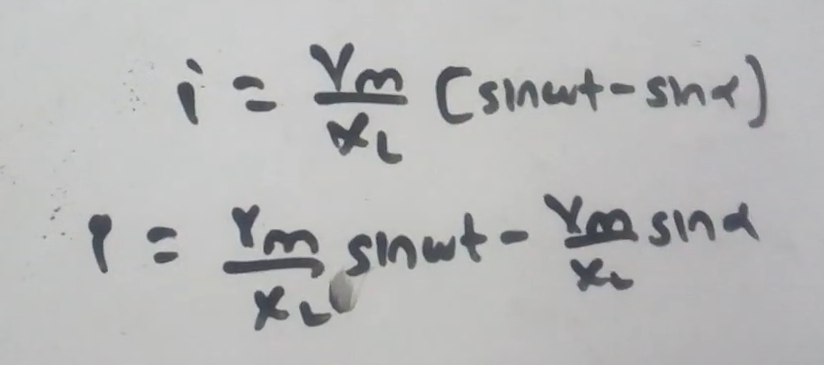 i = Vm/XL (sinωt - sinα)
i = Vm/XL sinωt - Vm/XL sinα